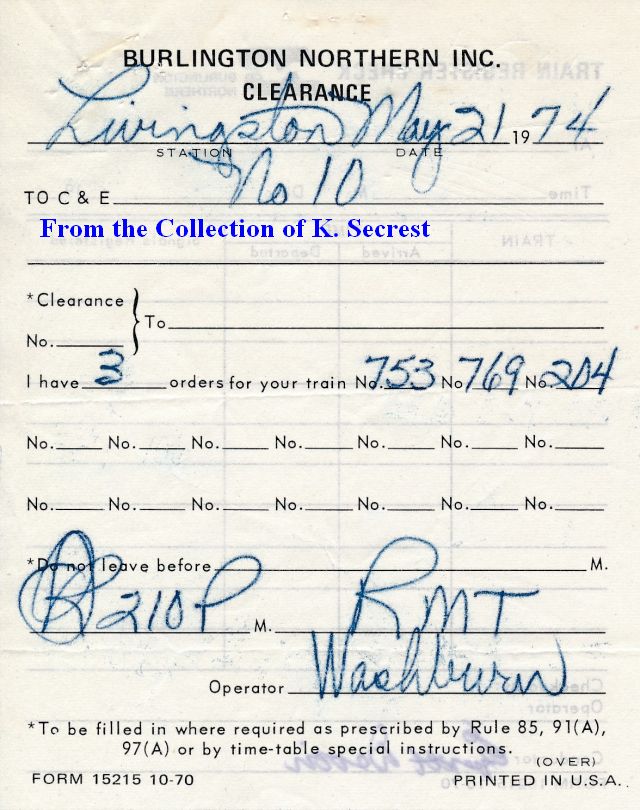 BURLINGTON NORTHERN INC.
CLEARANCE
Livingston May 21 1974
STATION DATE
TO C & E No 10
From the Collection of K. Secrest
*Clearance
No. } To
I have 3 orders for your train No. 753 No 769 No. 204
No. No. No. No. No. No. No.
No. No. No. No. No. No. No.
*Do not leave before M.
210P M. RMT
Operator Washburn
*To be filled in where required as prescribed by Rule 85, 91(A),
97(A) or by time-table special instructions.
(OVER)
FORM 15215 10-70 PRINTED IN U.S.A.